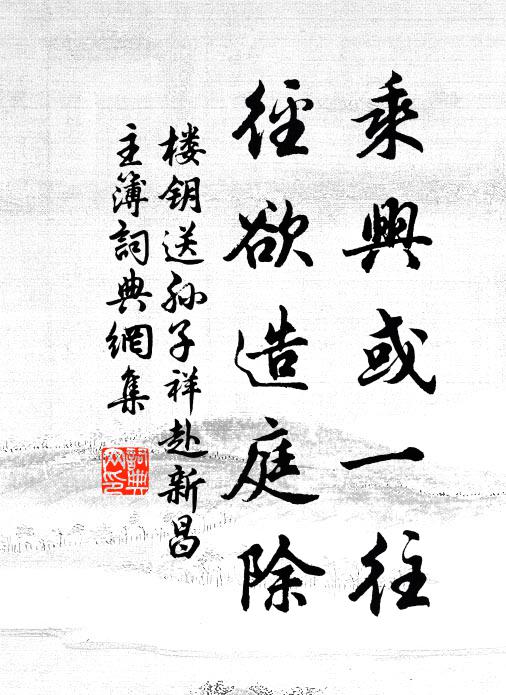 乘興或一往
徑欲造庭除
楼钥送孙子祥赴新昌
主簿詞典網集
詞典網印